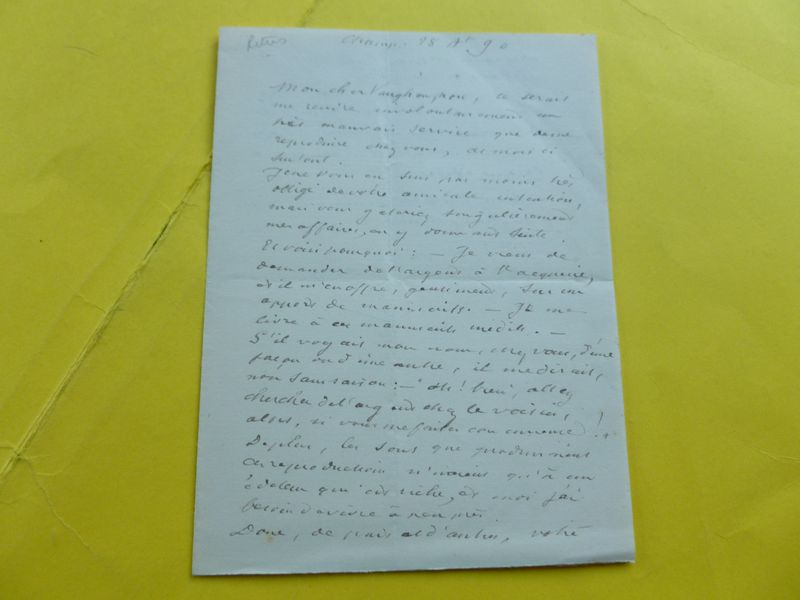 25 At 90
Mon cher Vaughan, ce serait
me rendre involontairement un
très mauvais service que de me
reproduire chez vous, de mois ci
surtout.
Je ne vous en suis pas moins très
obligé de votre amicale intention,
mais vous gâteriez singulièrement
mes affaires, en y donnant suite.
Et voici pourquoi : — Je viens de
demander de l'argent à
et il m'en offre, gentiment, sur un
apport de manuscrits. — Je me
livre à ces manuscrits inédits. —
S'il voyait mon nom, chez vous, d'une
façon ou d'une autre, il me dirait,
non sans raison : — Ah ! bien, allez
chercher de l'argent chez le voisin,
alors, si vous me faites concurrence !
De plus, les sous que produiraient
ces reproductions n'iraient qu'à un
éditeur qui est riche, et moi j'ai
besoin de vivre à peu près.
Donc, de puis et d'autres, votre